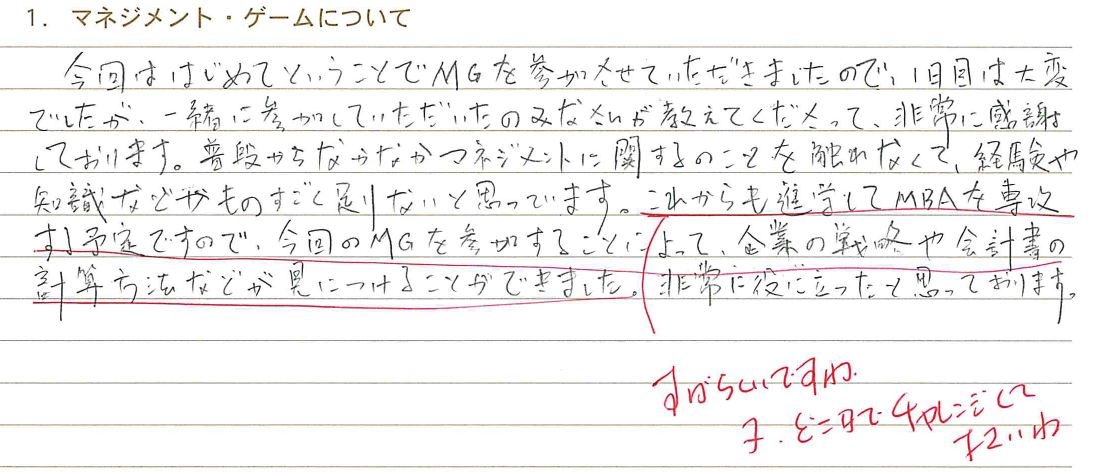 1. マネジメント・ゲームについて
今回ははじめてということでMGを参加させていただきましたので、1日目は大変
でしたが、一緒に参加していただいたのみなさんが教えてくださって、非常に感謝
しております。普段からなかなかマネジメントに関するのことを触れなくて、経験や
知識などがものすごく足りないと思っています。これからも進学してMBAを専攻
する予定ですので、今回のMGを参加することによって、企業の戦略や会計書の
計算方法などが見につけることができました。非常に役に立ったと思っております。
すばらしいですね